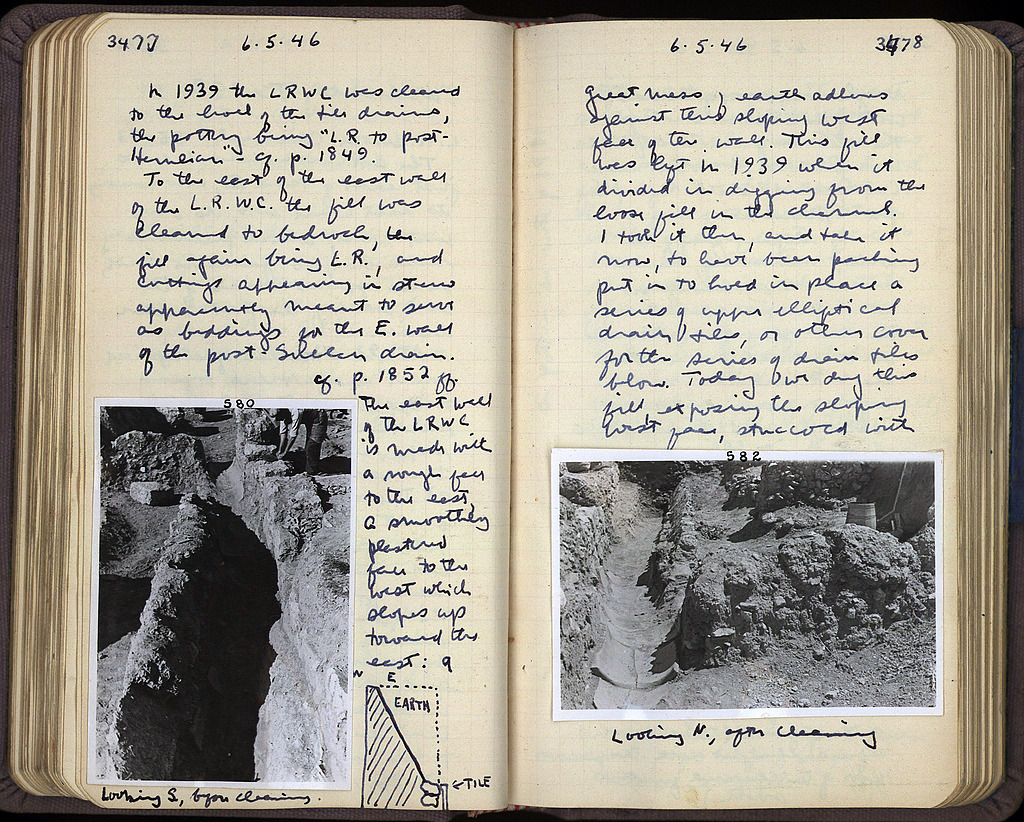 3477
6.5.46
In 1939 the LRWC was cleared
to the level of the tile drains,
the pottery being "L.R. to post-
Herulian" - cf. p. 1849.
To the east of the east wall
of the L.R.W.C. the fill was
cleared to bedrock, the
fill again being L.R., and
cuttings appearing in
apparently meant to serve
as beddings for the E. wall
of the post-Sullan drain.
cf. p. 1852 ff.
580
The east wall
of the LRWC
is made with
a rough face
to the east,
a smoothly
plastered
face to the
west which
slopes up
toward the
east: a
E
EARTH
←TILE
Looking S, before cleaning.
6.5.46
3478
great mass of earth adheres
against this sloping west
face of the wall. This fill
was left in 1939 when it
divided in digging from the
loose fill in the channel.
I took it then, and take it
now, to have been packing
put in to hold in place a
series of upper elliptical
drain tiles, or other cover
for the series of drain tiles
below. Today we dug this
fill, exposing the sloping
west face, stuccoed with
582
Looking N., after cleaning